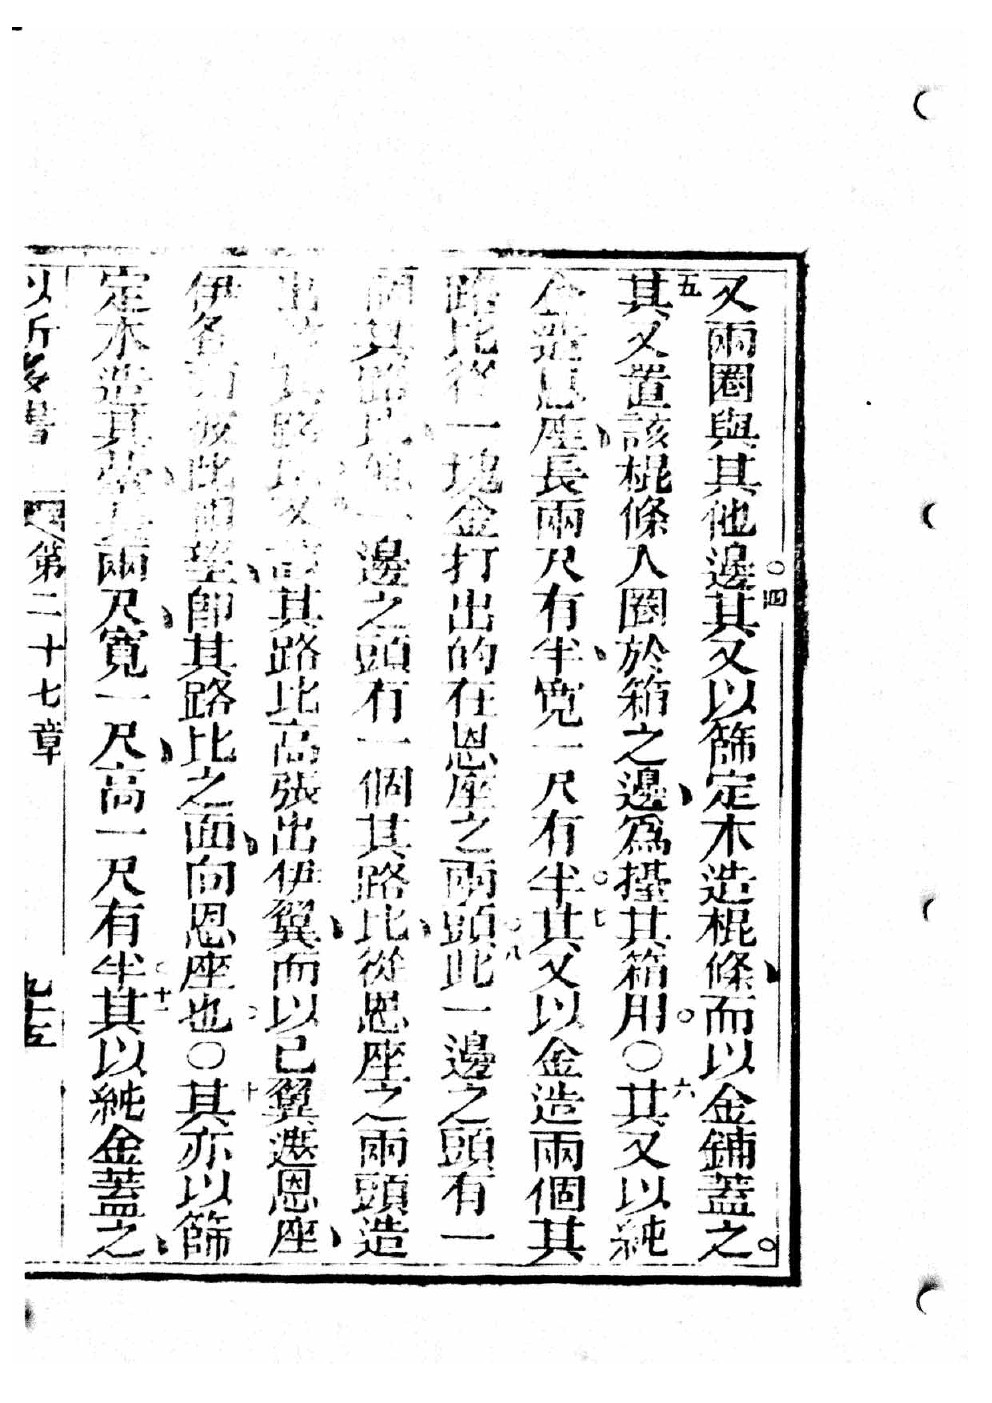 又兩圈與其他邊○四其又以篩定木造棍條而以金鋪蓋之
五其又置該棍條入圈於箱之邊爲擡其箱用○六其又以純
金造恩座長兩尺有半寬一尺有半○七其又以金造兩個其
路比從一塊金打出的在恩座之兩頭○八此一邊之頭有一
個其路比他一邊之頭有一個其路比從恩座之兩頭造
出其路比○九又其路比高張出伊翼而以己翼遮恩座
伊各面彼此相望卽其路比之面向恩座也○十其亦以篩
定木造其檯長兩尺寬一尺高一尺有半○十一其以純金蓋之
第二十七章
九十五